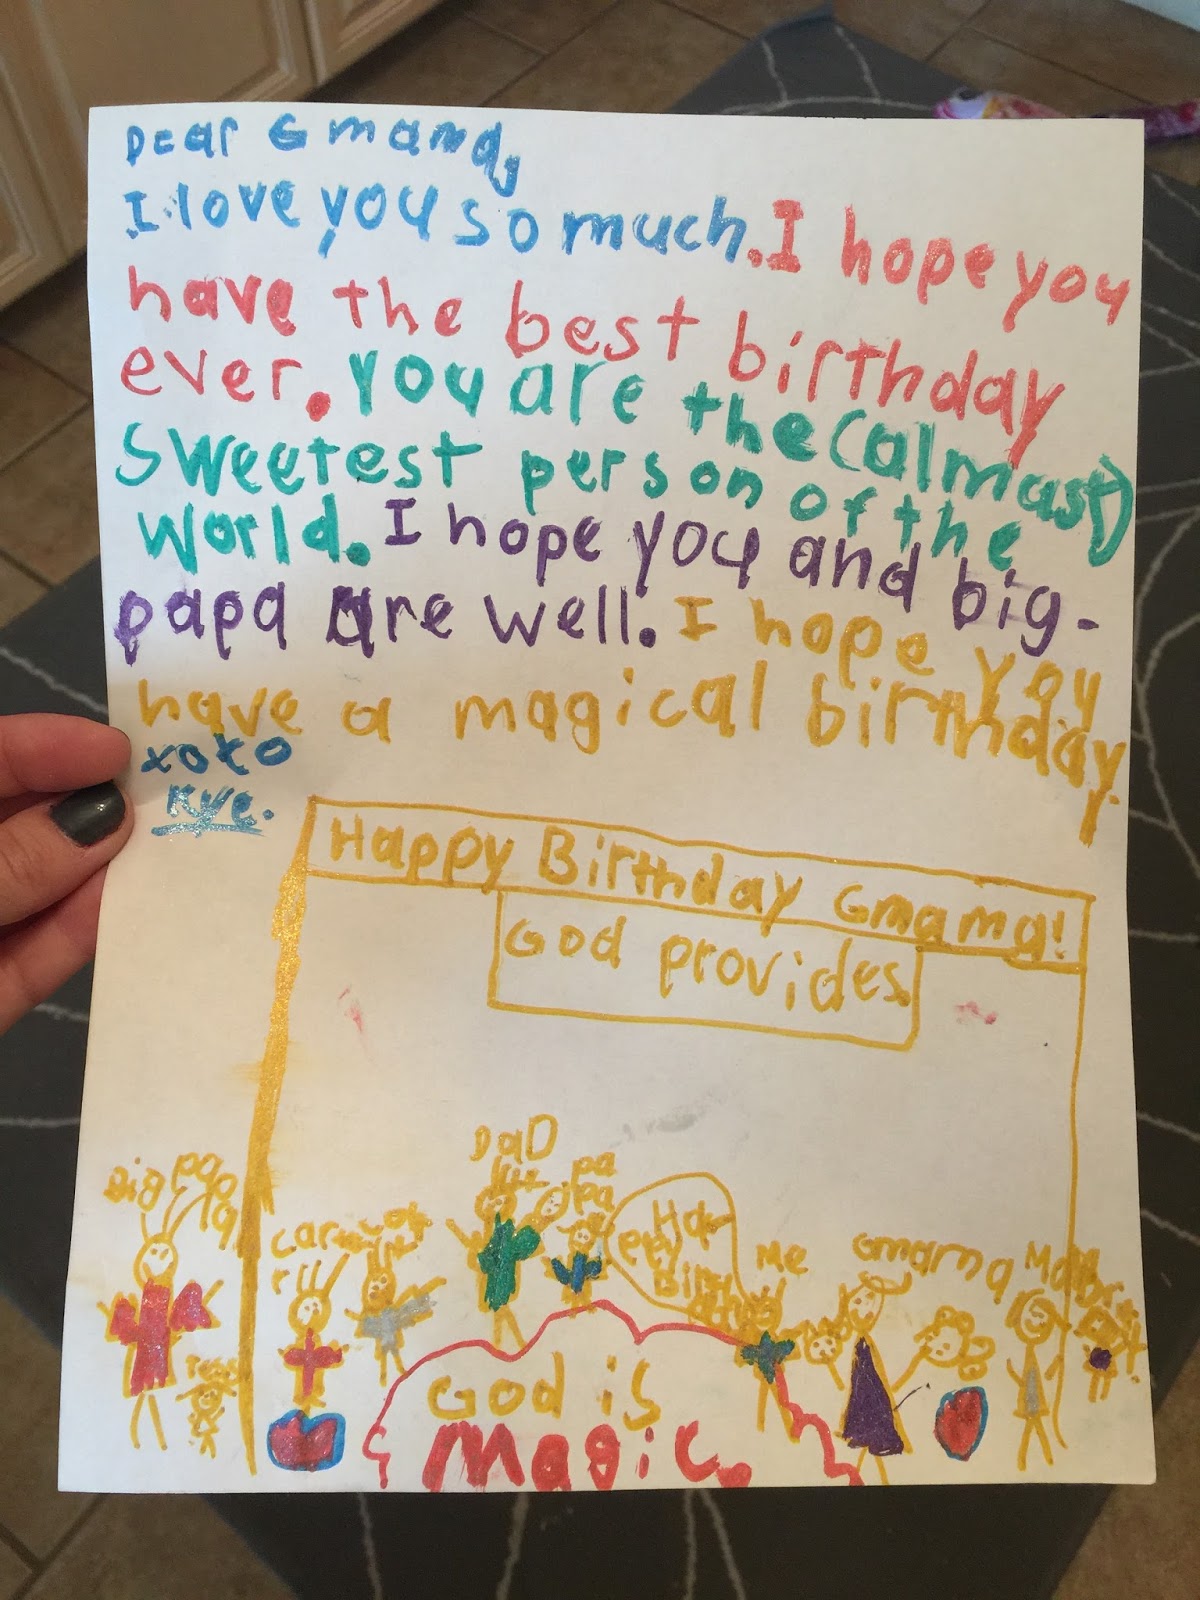 Dear Gmama,
I love you so much. I hope you
have the best birthday
ever. You are the (almast)
sweetest person of the
world. I hope you and big-
papa are well. I hope you
have a magical birthday.
xoxo
Rye.
Happy Birthday Gmama!
God provides
DaD
Big papa
pa
pa
Hap
ppy
Birth
Me
Gmama
God is
Magic.